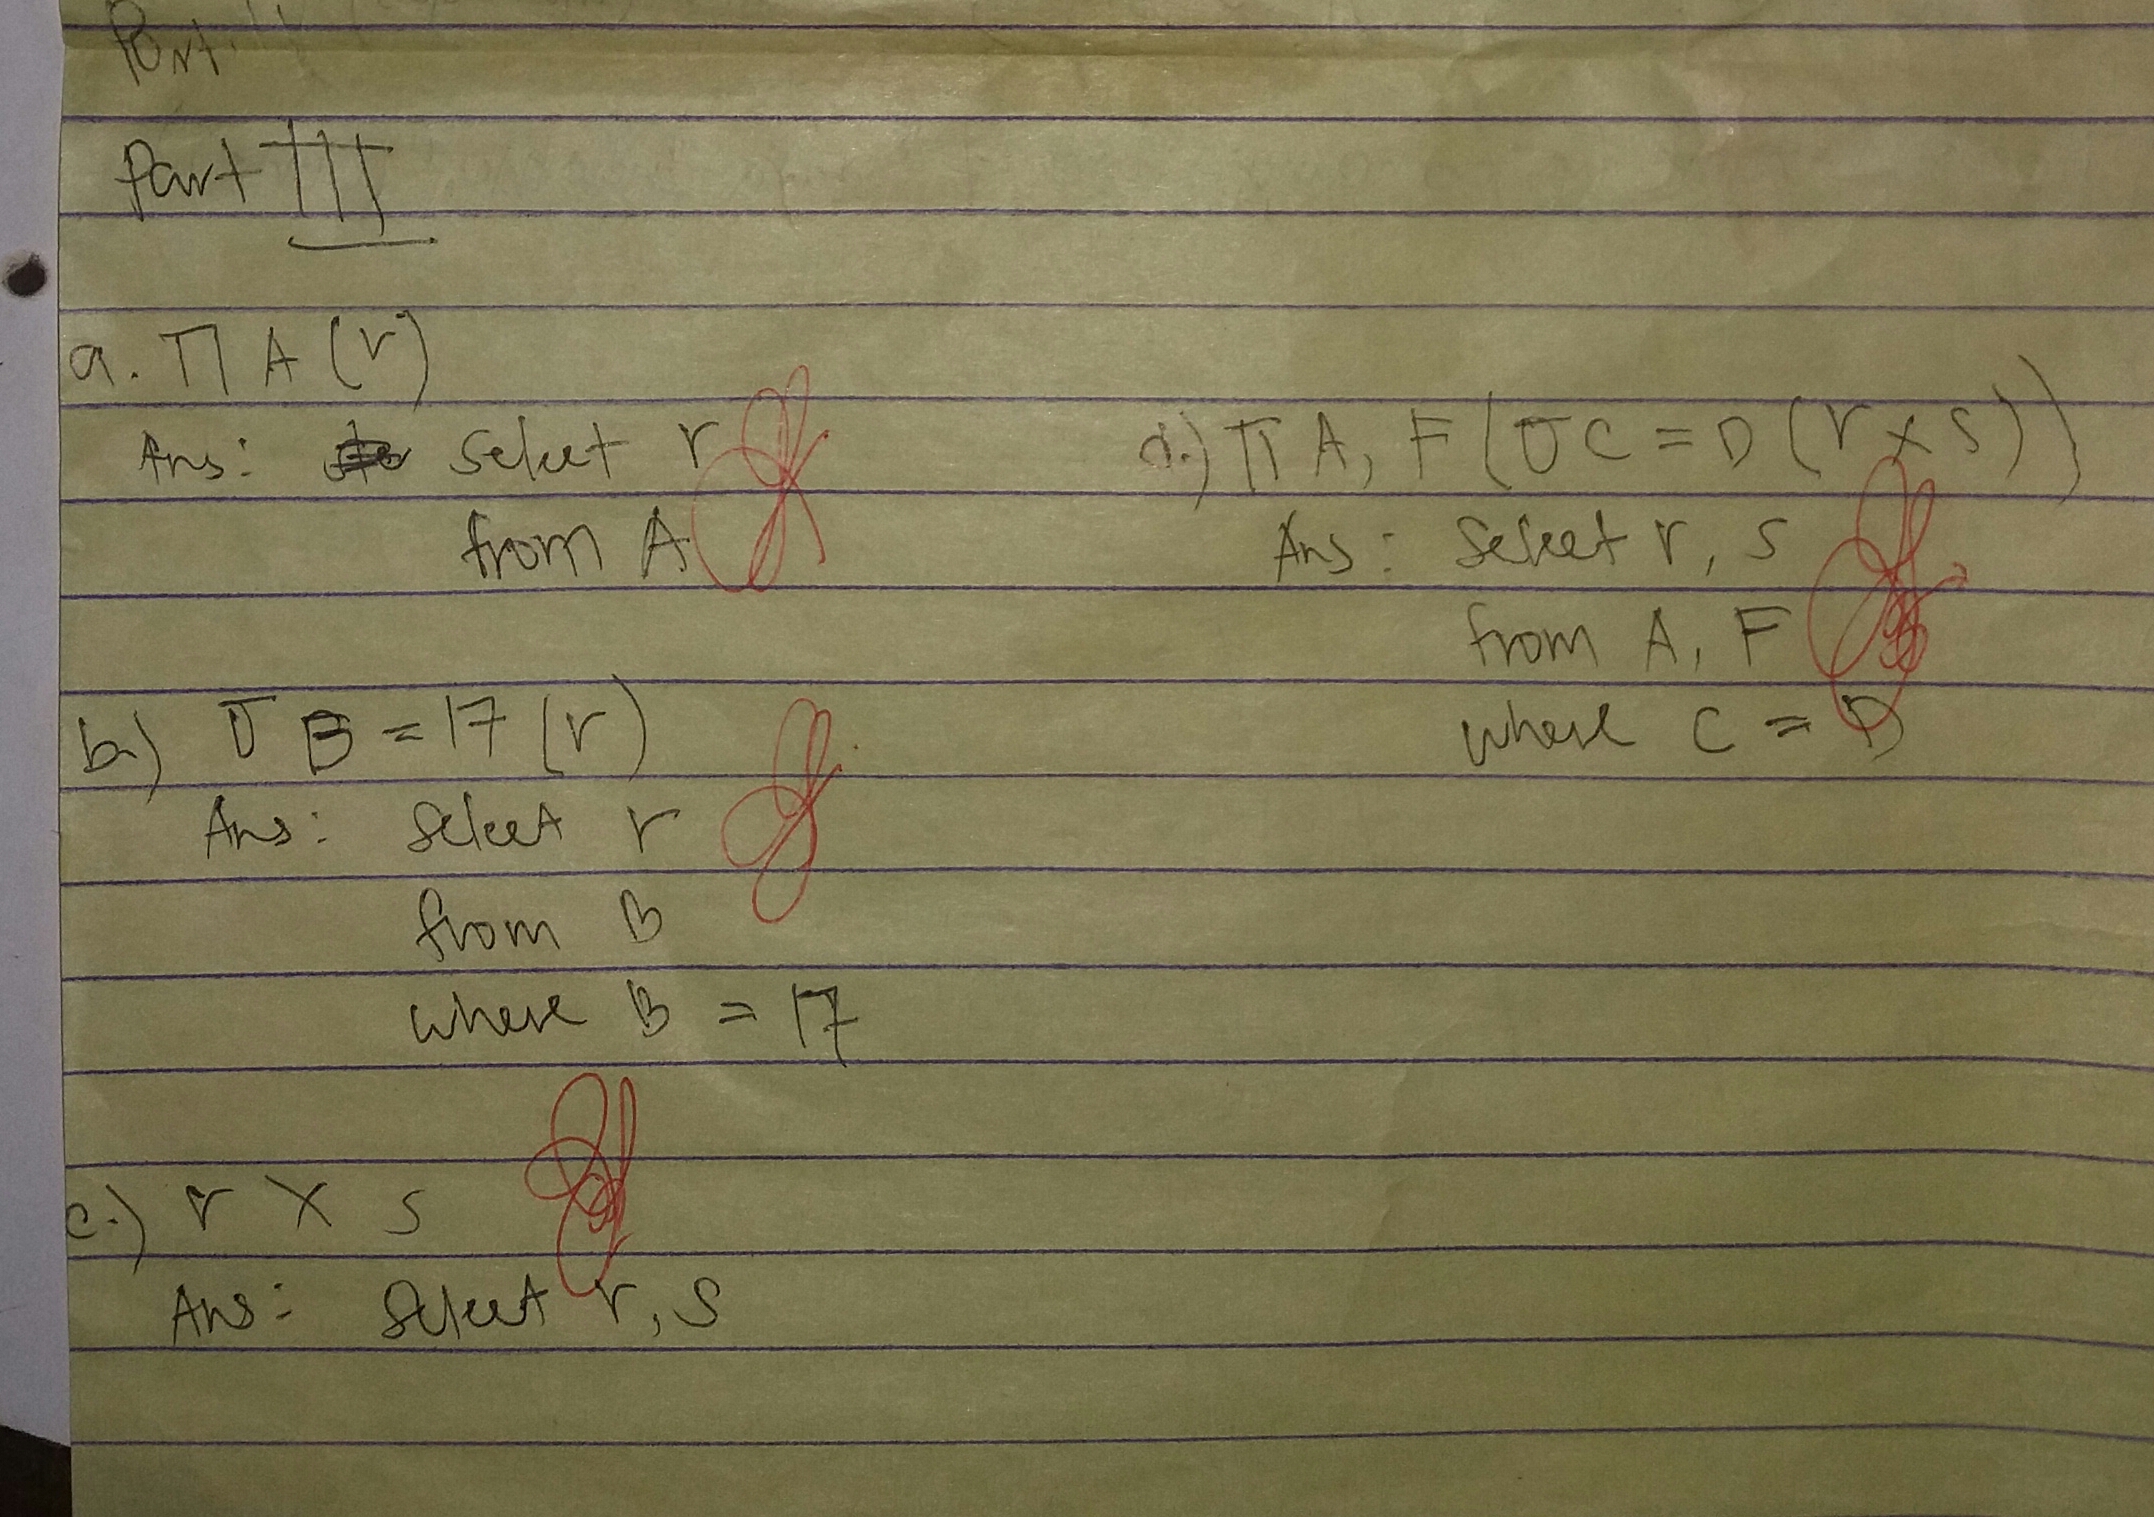 Part
Part III
a. Π A (r)
Ans: select r
from A
b.) σ B = 17 (r)
Ans: select r
from B
where B = 17
c.) r X s
Ans: select r, s
d.) Π A, F (σ C = D (r x s))
Ans: select r, s
from A, F
where C = D